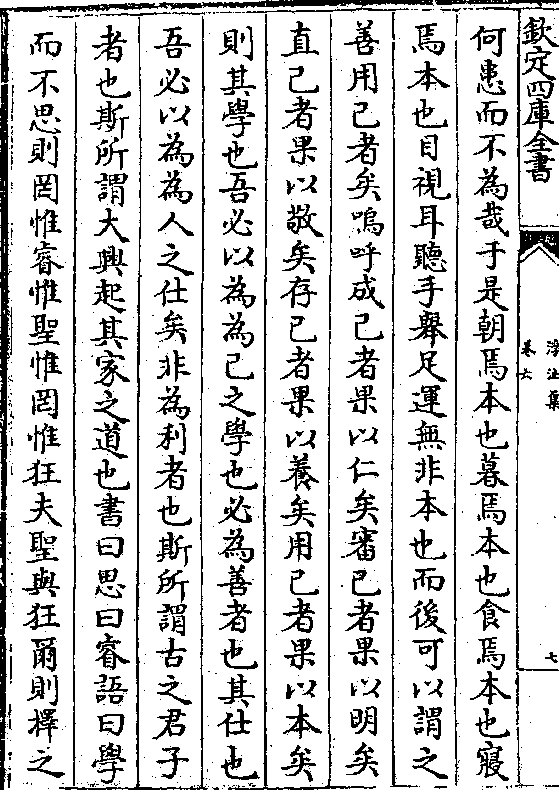 欽定四庫全書
浮沚集
卷六
七
何患而不為哉于是朝焉本也暮焉本也食焉本也寢
焉本也目視耳聽手舉足運無非本也而後可以謂之
善用己者矣嗚呼成己者果以仁矣審己者果以明矣
直己者果以敬矣存己者果以養矣用己者果以本矣
則其學也吾必以為為己之學也必為善者也其仕也
吾必以為為人之仕矣非為利者也斯所謂古之君子
者也斯所謂大興起其家之道也書曰思曰睿語曰學
而不思則罔惟睿惟聖惟罔惟狂夫聖與狂爾則擇之